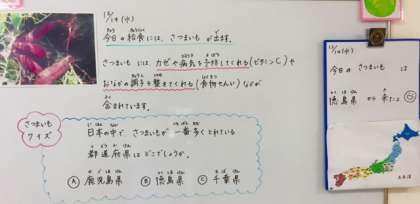 12/14(水)
今日の給食には、さつまいもが出ます。
さつまいもには、カゼや病気を予防してくれる(ビタミンC)や
おなかの調子を整えてくれる(食物せんい)などが
含まれています。
さつまいも
クイズ
日本の中で さつまいもが 一番多くとれている
都道府県は どこでしょうか。
Ⓐ 鹿児島県 Ⓑ 徳島県 Ⓒ 千葉県
12/14(水)
今日の さつまいも は
徳島県 から 来たよ